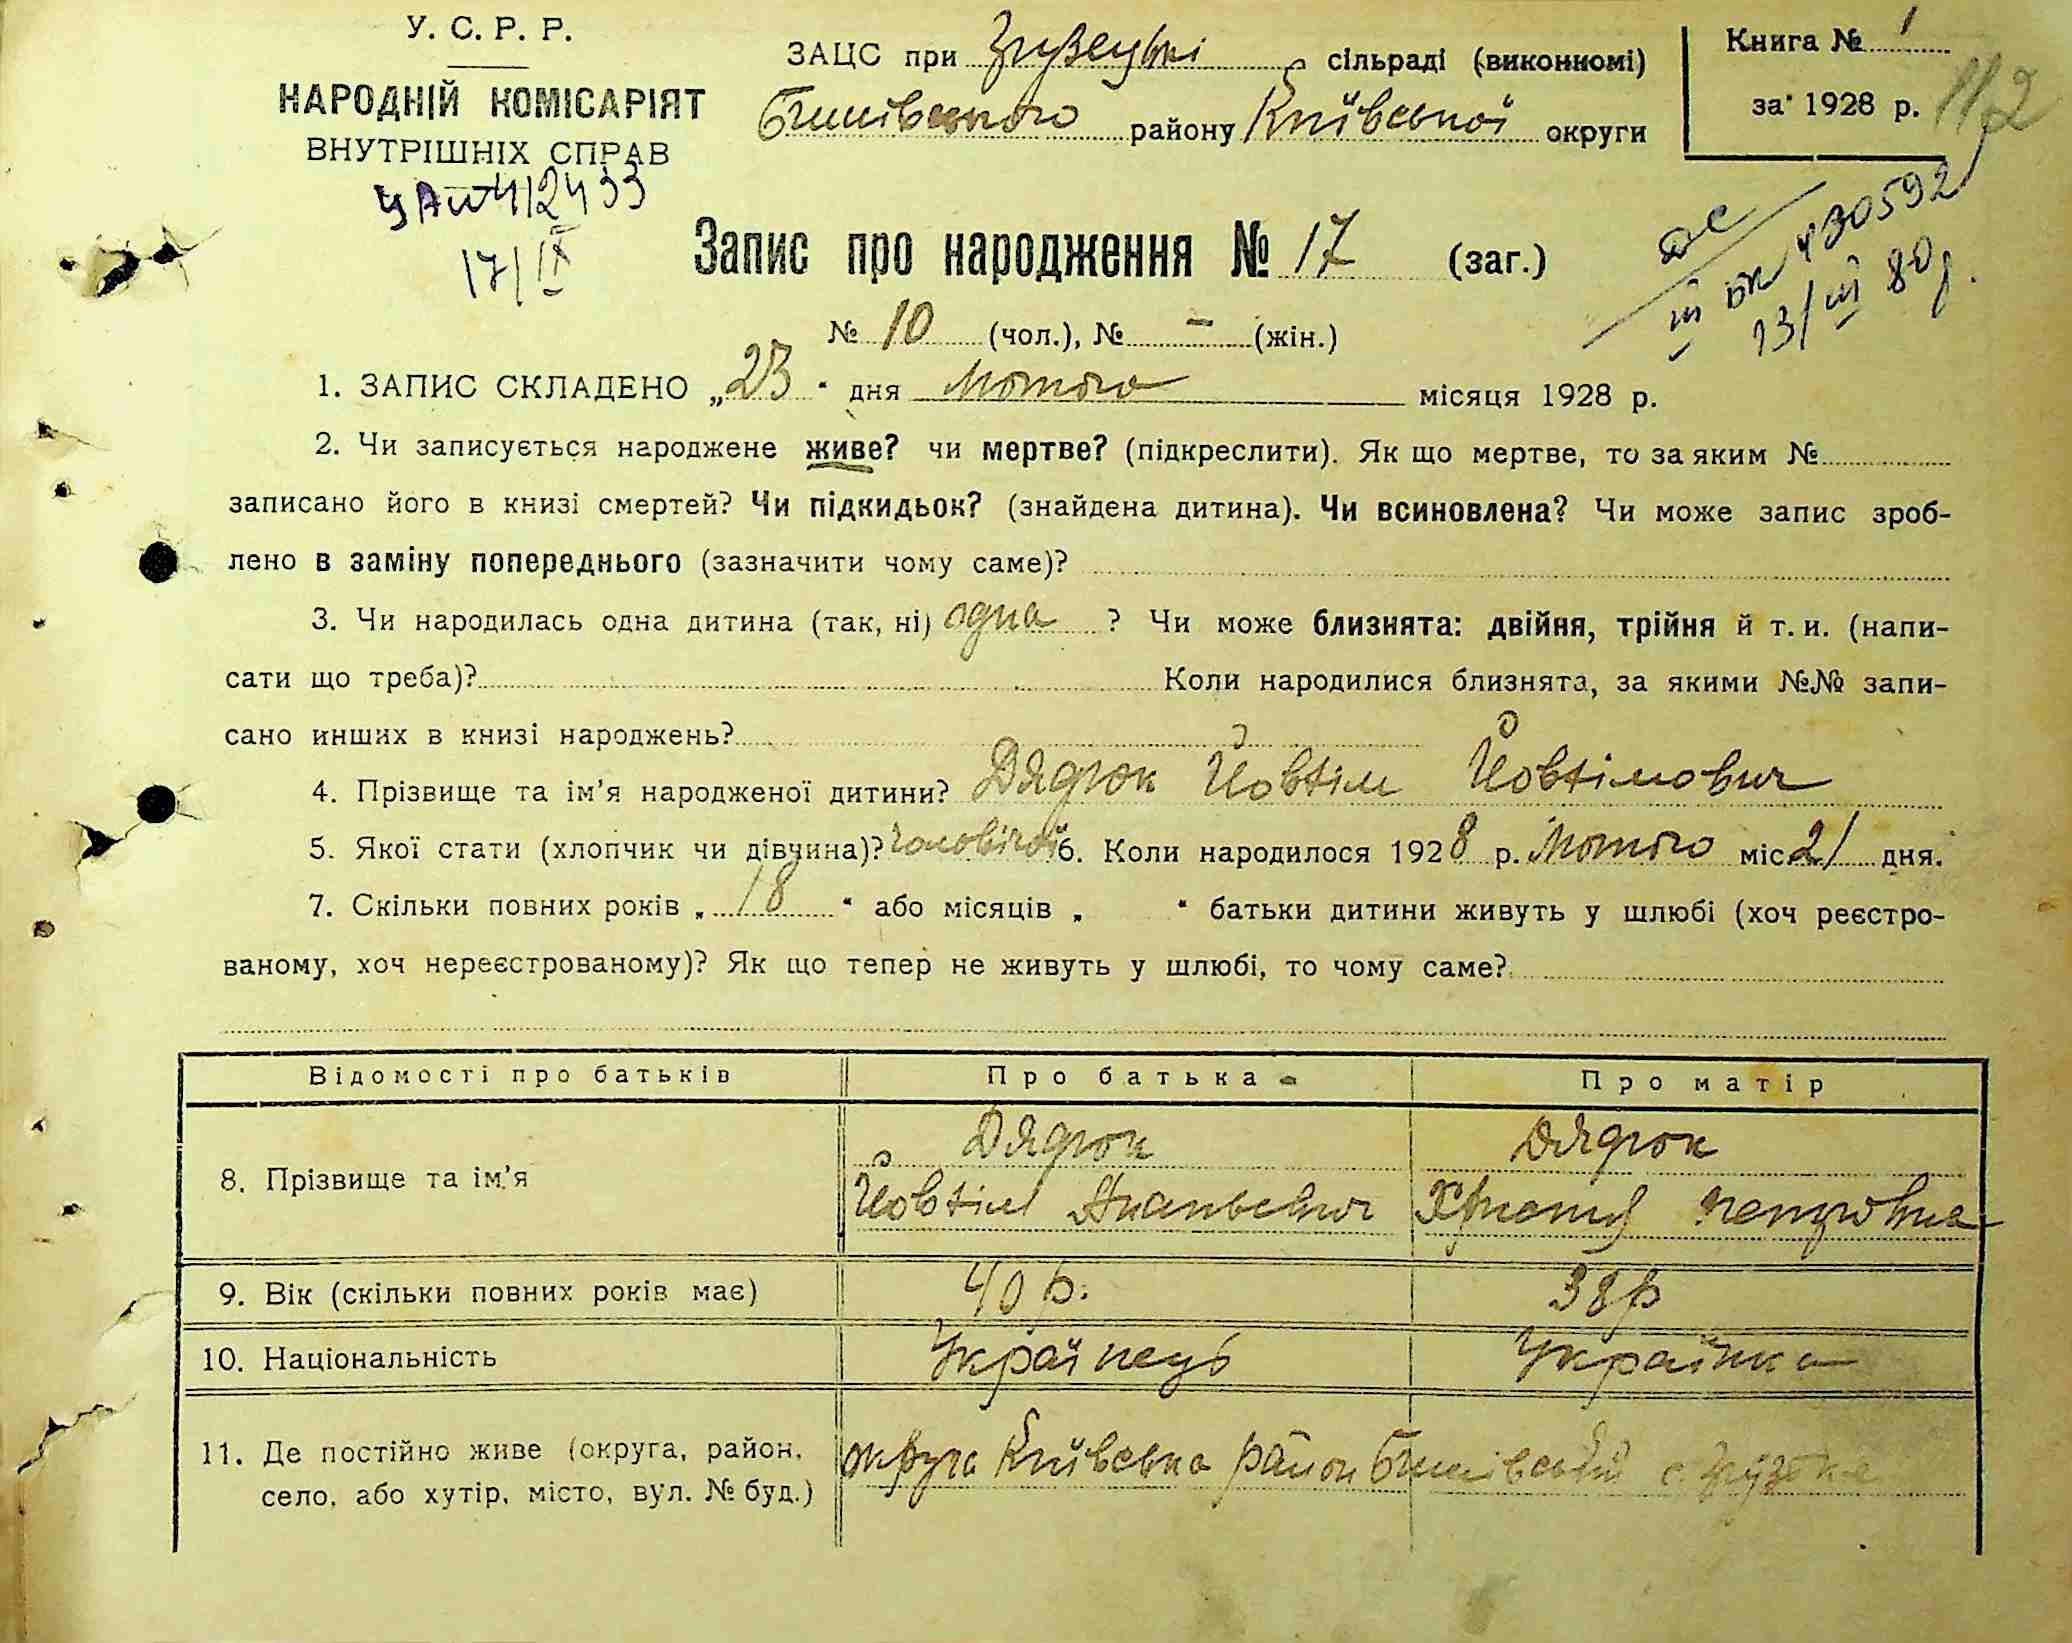 У. С. Р. Р.
НАРОДНІЙ КОМІСАРІЯТ
ВНУТРІШНІХ СПРАВ
ЗАЦС при Грузецькі сільраді (виконкомі)
Бишівського району Київської округи
Книга № 1
за 1928 р.
112
412433
17/IX
430592
13/III 80 р.
Запис про народження № 17 (заг.)
№ 10 (чол.), № – (жін.)
1. ЗАПИС СКЛАДЕНО „23“ дня Лютого місяця 1928 р.
2. Чи записується народжене живе? чи мертве? (підкреслити). Як що мертве, то за яким №
записано його в книзі смертей? Чи підкидьок? (знайдена дитина). Чи всиновлена? Чи може запис зроб-
лено в заміну попереднього (зазначити чому саме)?
3. Чи народилась одна дитина (так, ні) одна ? Чи може близнята: двійня, трійня й т. и. (напи-
сати що треба)? Коли народилися близнята, за якими №№ запи-
сано инших в книзі народжень?
4. Прізвище та ім'я народженої дитини? Дядюк Йовтім Йовтімович
5. Якої стати (хлопчик чи дівчина)? чоловічої 6. Коли народилося 1928 р. Лютого міс. 21 дня.
7. Скільки повних років „18“ або місяців „ “ батьки дитини живуть у шлюбі (хоч реєстро-
ваному, хоч нереєстрованому)? Як що тепер не живуть у шлюбі, то чому саме?
Відомості про батьків Про батька Про матір
8. Прізвище та ім'я Дядюк Йовтім Дядюк Христя Петровна
9. Вік (скільки повних років має) 40 р. 38 р
10. Національність Українець Українка
11. Де постійно живе (округа, район, округа Київська район Бишівський с. Грузьке
село, або хутір, місто, вул. № буд.)